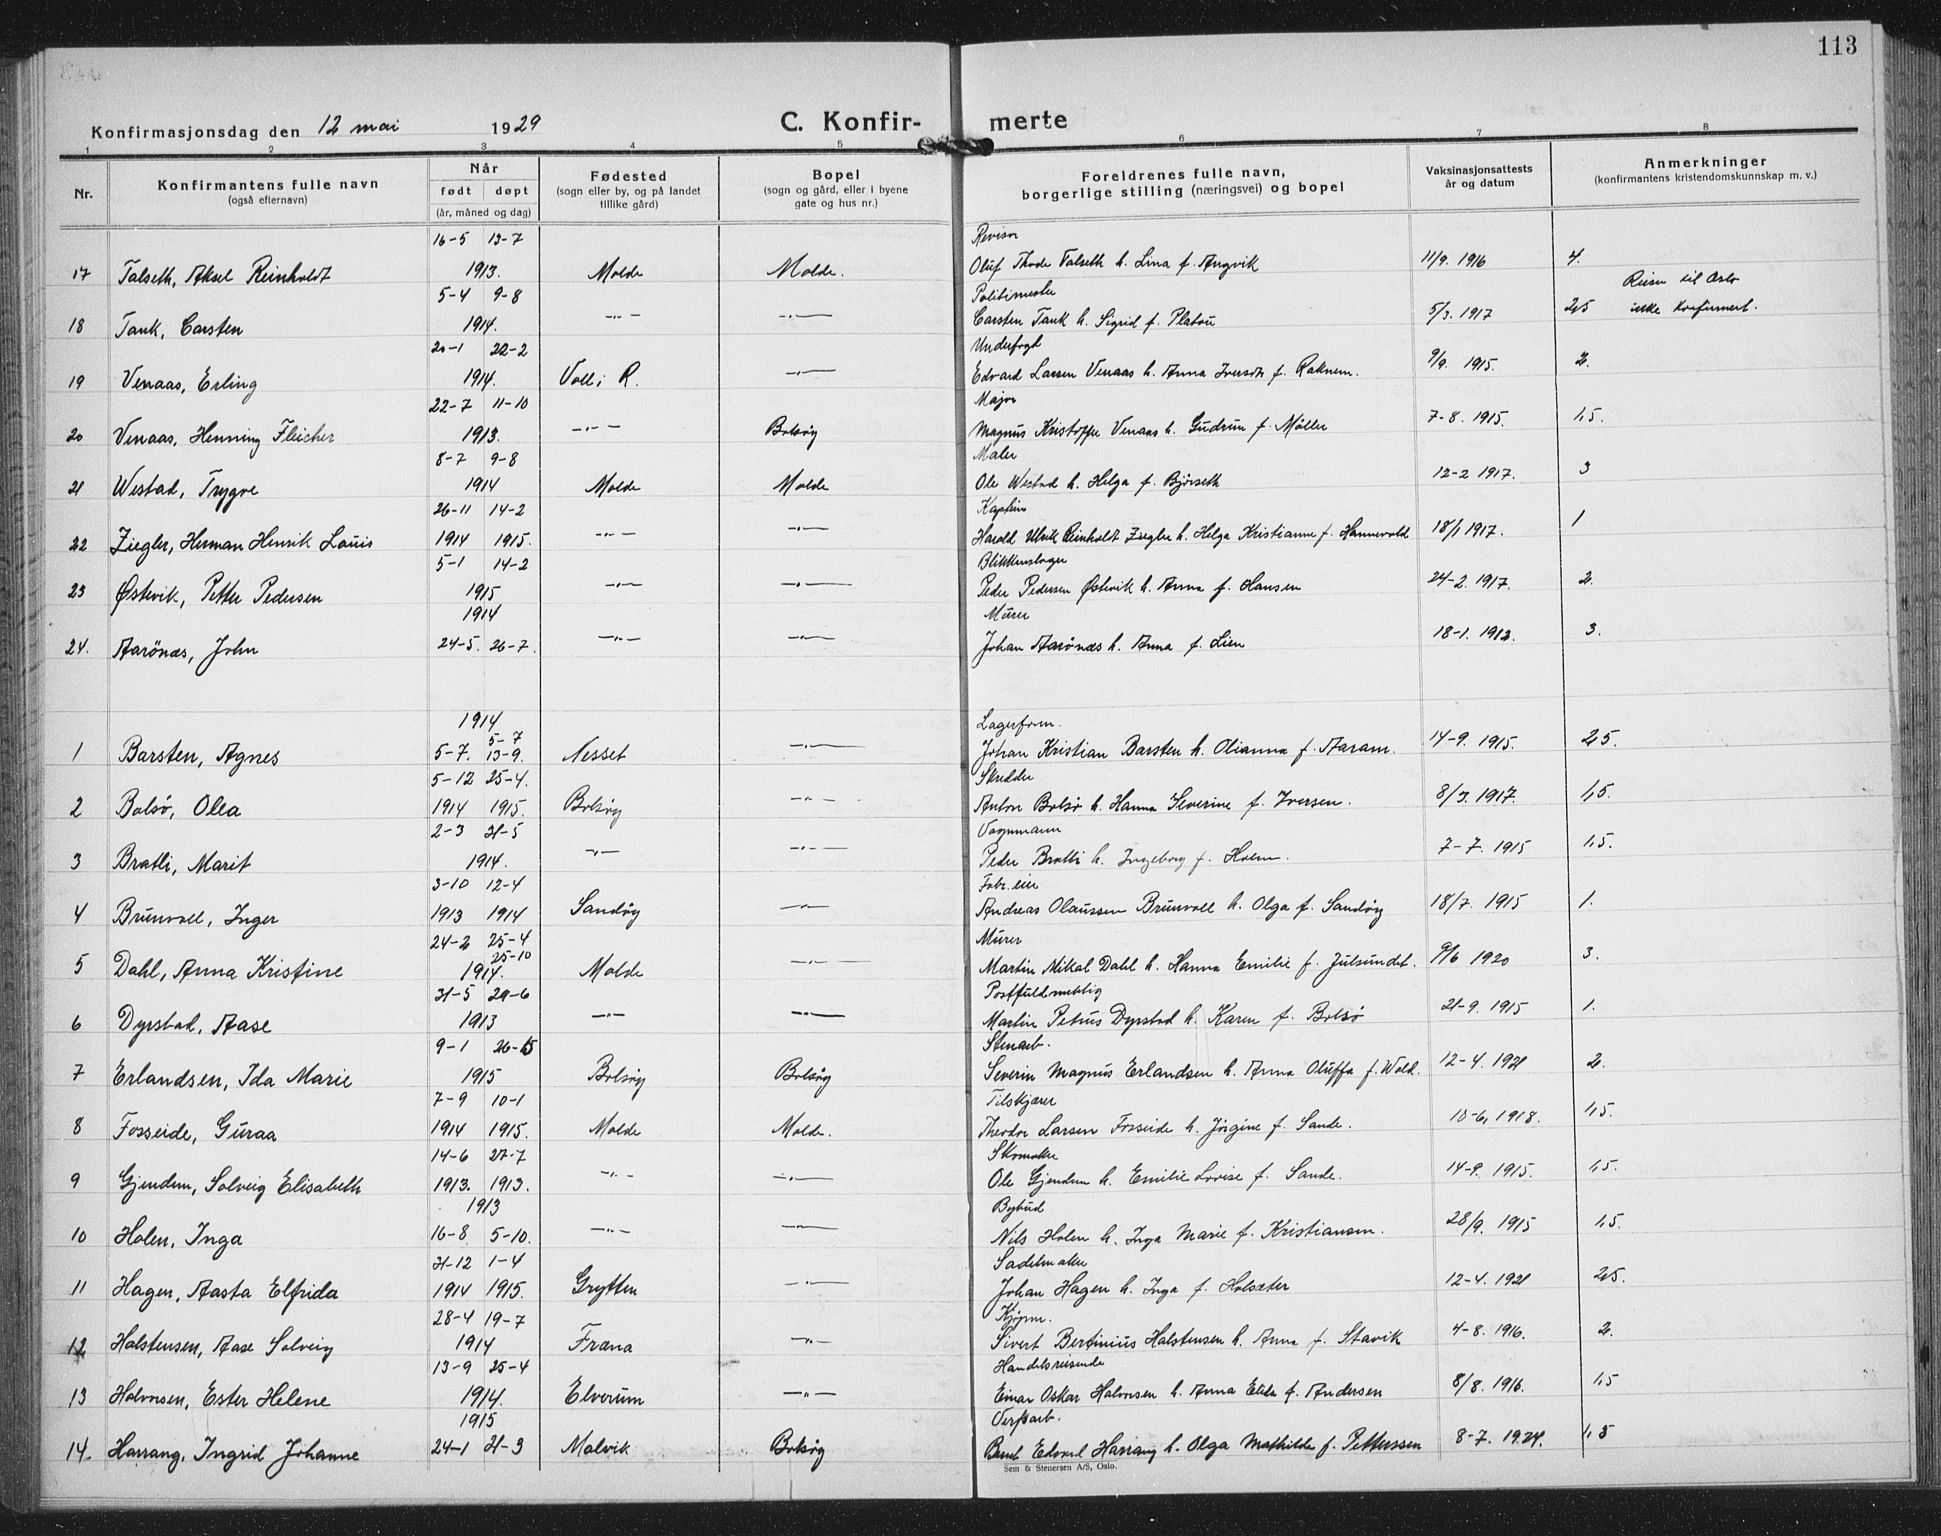 113
Konfirmasjonsdag den 12 mai 1929
C. Konfirmerte
1 2 3 4 5 6 7 8
Nr.
Konfirmantens fulle navn
(også efternavn)
Når
født døpt
(år, måned og dag)
Fødested
(sogn eller by, og på landet
tillike gård)
Bopel
(sogn og gård, eller i byene
gate og hus nr.)
Foreldrenes fulle navn,
borgerlige stilling (næringsvei) og bopel
Vaksinasjonsattests
år og datum
Anmerkninger
(konfirmantens kristendomskunnskap m. v.)
16-5 13-7 Revisor
17 Talseth, Aksel Reinholdt 1913. Molde Molde. Oluf Thode Talseth h. Lina f. Angvik 11/9. 1916 4.
5-4 9-8 Politimester Reise til Oslo
18 Tank, Carsten 1914. -"- -"- Carsten Tank h. Sigrid f. Platou 5/3. 1917 2,5 ikke konfirmert.
20-1 22-2 Underfogd
19 Venaas, Erling 1914. Voll i R. -"- Edvard Larsen Venaas h. Anna Iversdtr f. Raknem. 9/9. 1915. 2.
22-7 11-10 Major
20 Venaas, Henning Fleicher 1913. -"- Bolsøy Magnus Kristoffer Venaas h. Gudrun f. Møller 7-8. 1915. 1,5.
8-7 9-8 Maler
21 Westad, Trygve 1914 Molde Molde Ole Westad h. Helga f. Bjørseth 12-2 1917. 3
26-11 14-2 Kaptein
22 Ziegler, Herman Henrik Louis 1914 1915. -"- -"- Harald Ulrik Reinholdt Ziegler h. Helga Kristianne f. Hannevold 18/1 1917. 1
5-1 14-2 Blikkenslager
23 Østevik, Petter Pedersen 1915 -"- -"- Peder Pedersen Østevik h. Anna f. Hansen 24-2. 1917. 2.
1914 Murer
24. Aarönæs, John 24-5. 26-7. -"- -"- Johan Aarønæs h. Anna f. Lien 18-1. 1913. 3.
1914 Lagerform.
5-7
1 Barsten, Agnes 5-7. 13-9. Nesset -"- Johan Kristian Barsten h. Olianna f. Aaram. 14-9. 1915. 2,5.
5-12 25-4. Skredder
2 Bolsø, Olea 1914 1915. Bolsøy -"- Anton Bolsø h. Hanna Severine f. Iversen. 8/3. 1917. 1,5.
2-3 21-5 Vognmann
3 Bratli, Marit 1914. -"- -"- Peder Bratli h. Ingeborg f. Holm. 7-7. 1915 1,5.
3-10 12-4 Fabr. eier
4 Brunvoll, Inger 1913 1914 Sandøy -"- Andreas Olaussen Brunvoll h. Olga f. Sandøy 18/7. 1915 1.
24-2 25-4 Murer
25-10
5 Dahl, Anna Kristine 1914. Molde -"- Martin Mikal Dahl h. Hanna Emilie f. Julsundet. 9/6 1920 3.
31-5 29-6 Postfuldmektig
6 Dyrstad, Aase 1913 -"- -"- Martin Petrus Dyrstad h. Karen f. Bolsø 21-9. 1915 1.
9-1 26-15 Stenarb.
7 Erlandsen, Ida Marie 1915 Bolsøy Bolsøy Severin Magnus Erlandsen h. Anna Oluffa f. Wold. 12-4. 1921 2.
7-9 10-1 Tilskjærer
8 Fosseide, Guraa 1914 1915. Molde Molde. Theodor Larsen Fosseide h. Jørgine f. Sande. 10-6, 1918. 1,5.
14-6 27-7 Skomaker
9 Gjendem, Solveig Elisabeth 1913. 1913. -"- -"- Ole Gjendem h. Emilie Lovise f. Sande. 14-9. 1915. 1,5.
1913 Bybud
10 Holen, Inga 16-8 5-10. -"- -"- Nils Holen h. Inga Marie f. Kristiansen. 28/9. 1915 1,5.
31-12 1-4 Sadelmaker
11 Hagen, Aasta Elfrida 1914 1915. Grytten -"- Johan Hagen h. Inga f. Holsæter 12-4. 1921 2,5.
28-4 19-7 Kjøpm.
12 Halstensen, Aase Solveig 1914 Fræna -"- Sivert Bertinius Halstensen h. Anna f. Stavik 4-8. 1916. 2.
13-9 25-4 Handelsreisende
13 Halvorsen, Ester Helene 1914. Elverum -"- Einar Oskar Halvorsen h. Anna Elida f. Andersen 8/8. 1916. 1,5
1915 Verftarb.
14. Harrang, Ingrid Johanne 24-1 21-3 Malvik Bolsøy Bernt Edvard Harrang h. Olga Mathilde f. Petterssen 8-7. 1924. 1,5
Sem & Stenersen A/S, Oslo.